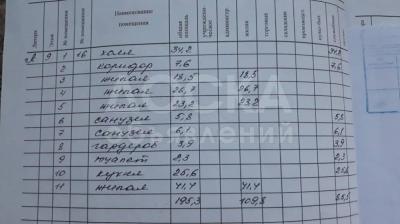 Литера Этаж № помещения № помещения Наименование помещения общая площадь учрежденческое канцеляр. жилая торговая складские производст.
А 9 1 холл 34,2 34,2
2 коридор 7,6 7,6
3 жилая 18,5 18,5
4 жилая 26,7 26,7
5 жилая 23,2 23,2
6 санузел 5,8 5,8
7 санузел 6,1 6,1
8 гардероб 3,9 3,9
9 туалет 2,3 2,3
10 кухня 25,6
11 жилая 41,4 41,4
195,3 109,8 85,5
ДОСКА
ОБЪЯВЛЕНИЙ